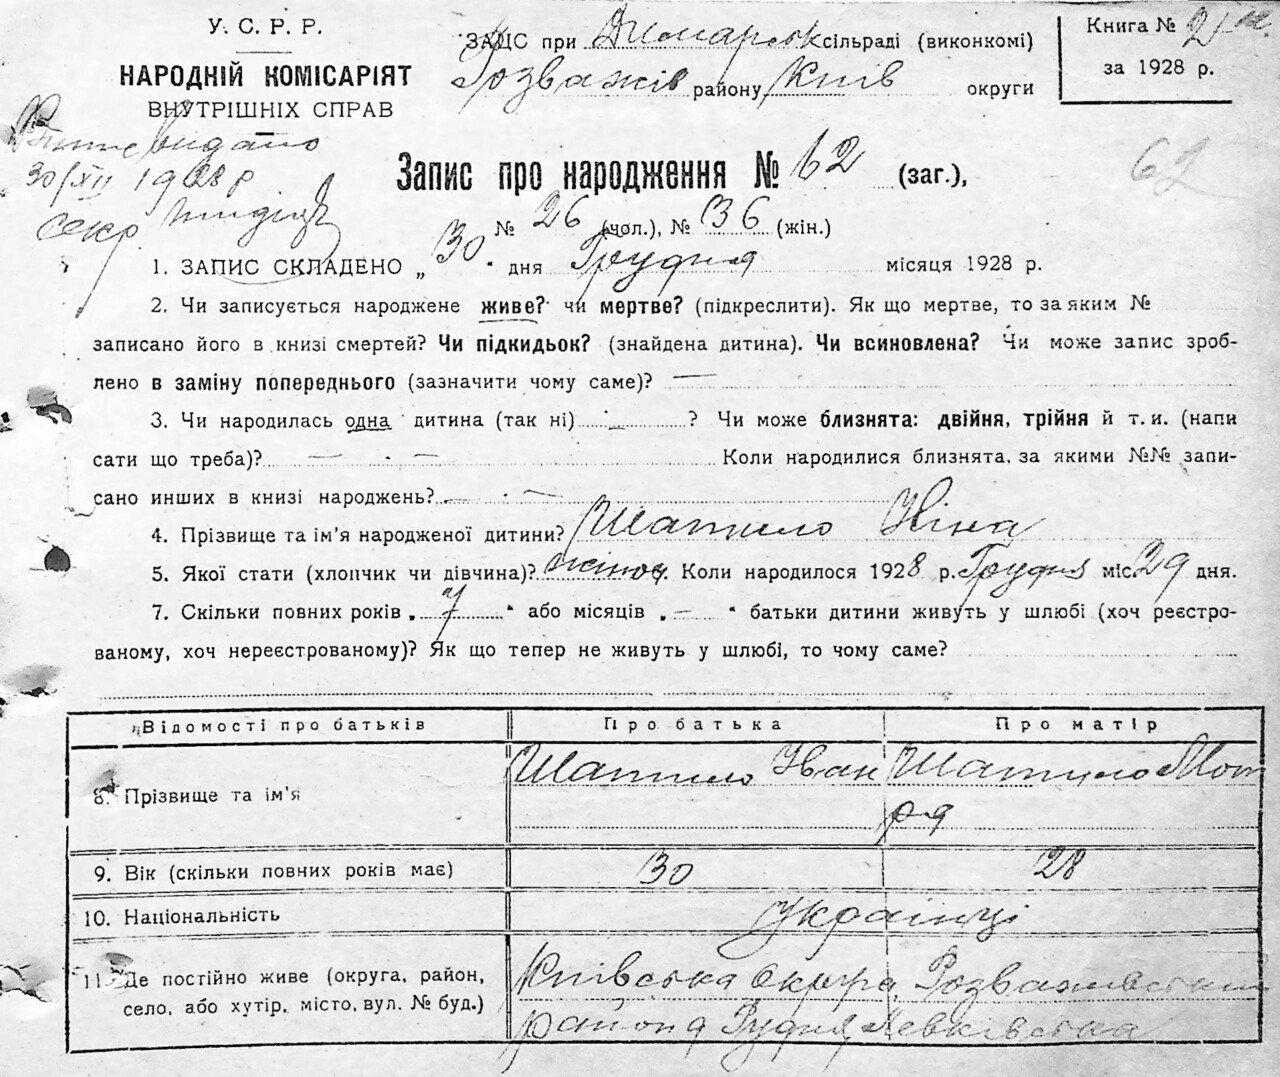 У. С. Р. Р.
НАРОДНІЙ КОМІСАРІЯТ
ВНУТРІШНІХ СПРАВ
ЗАЦС при Димарськ сільраді (виконкомі)
Розважів району Київ округи
Книга № 2
за 1928 р.
видано
30/XII 1928 р
секр.
Запис про народження № 62 (заг.),
62
№ 26 (чол.), № 36 (жін.)
1. ЗАПИС СКЛАДЕНО „ 30 " дня Грудня місяця 1928 р.
2. Чи записується народжене живе? чи мертве? (підкреслити). Як що мертве, то за яким №
записано його в книзі смертей? Чи підкидьок? (знайдена дитина). Чи всиновлена? Чи може запис зроб-
лено в заміну попереднього (зазначити чому саме)? —
3. Чи народилась одна дитина (так ні) — ? Чи може близнята: двійня, трійня й т. и. (напи
сати що треба)? — — Коли народилися близнята, за якими №№ запи-
сано инших в книзі народжень? — —
4. Прізвище та ім'я народженої дитини? Шатило Ніна
5. Якої стати (хлопчик чи дівчина)? жіноч. Коли народилося 1928 р. Грудня міс. 29 дня.
7. Скільки повних років „ 7 " або місяців „ — " батьки дитини живуть у шлюбі (хоч реєстро-
ваному, хоч нереєстрованому)? Як що тепер не живуть у шлюбі, то чому саме?
Відомості про батьків Про батька Про матір
8. Прізвище та ім'я Шатило Іван Шатило Мот
ря
9. Вік (скільки повних років має) 30 28
10. Національність Українці
11. Де постійно живе (округа, район,
село, або хутір, місто, вул. № буд.)
Київська округа, Розважівськ
район Рудня Левківська